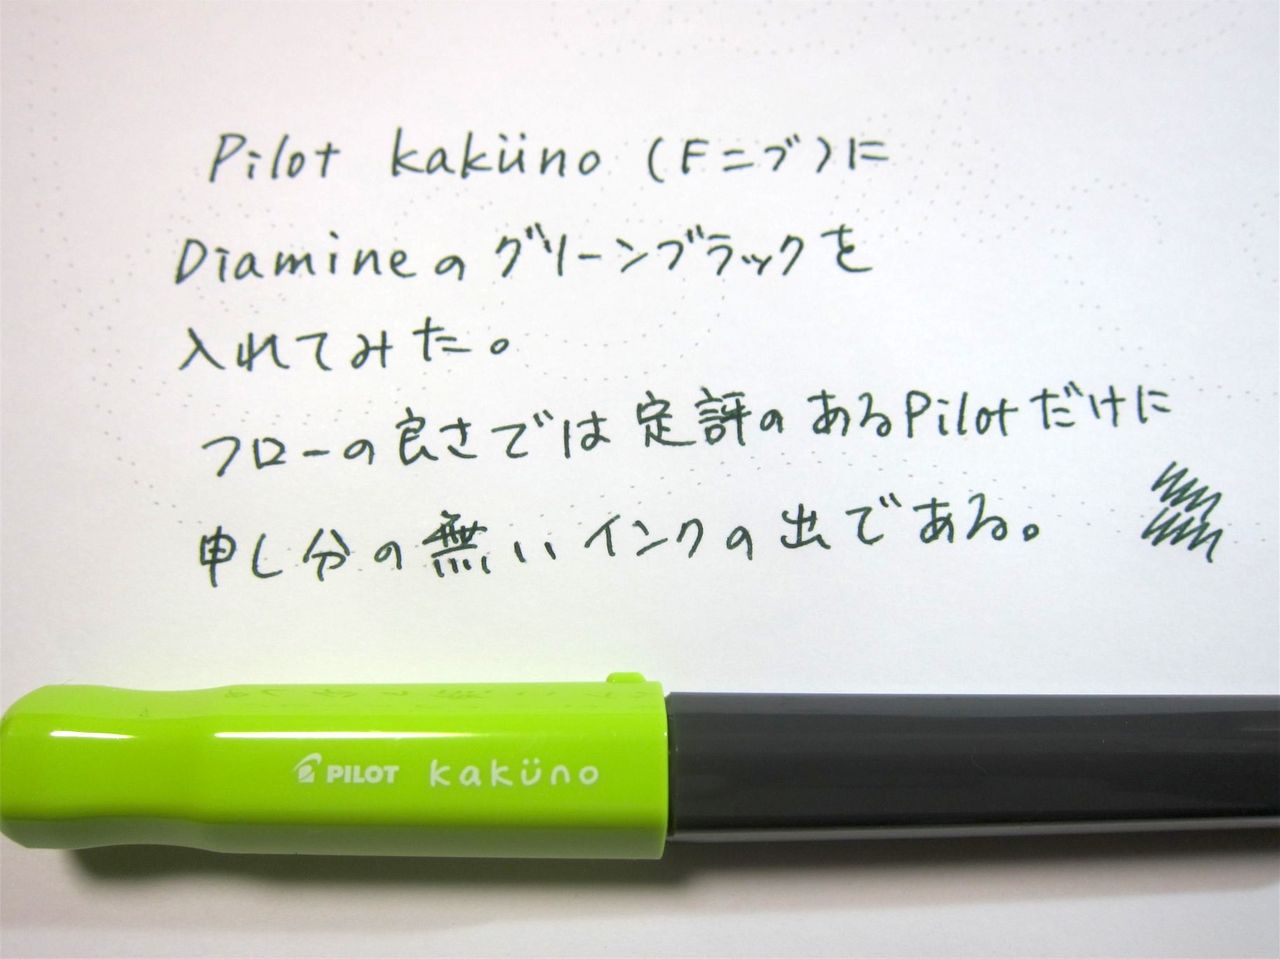 Pilot kaküno (Fニブ)に
Diamineのグリーンブラックを
入れてみた。
フローの良さでは定評のあるPilotだけに
申し分の無いインクの出である。
PILOT kaküno